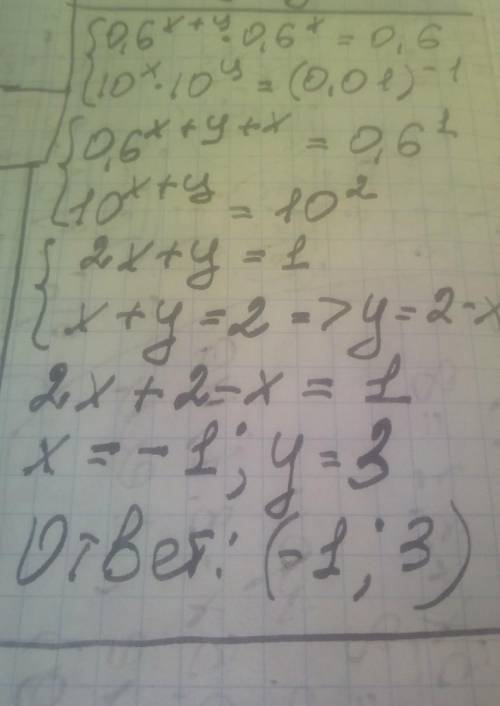 {0,6^(x+y) · 0,6^x = 0,6
{10^x · 10^y = (0,01)^(-1)
{0,6^(x+y+x) = 0,6^1
{10^(x+y) = 10^2
{2x+y = 1
{x+y = 2 => y = 2-x
2x + 2 - x = 1
x = -1; y = 3
Ответ: (-1; 3)